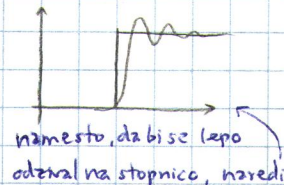 namesto, da bi se lepo
odzival na stopnico, naredi